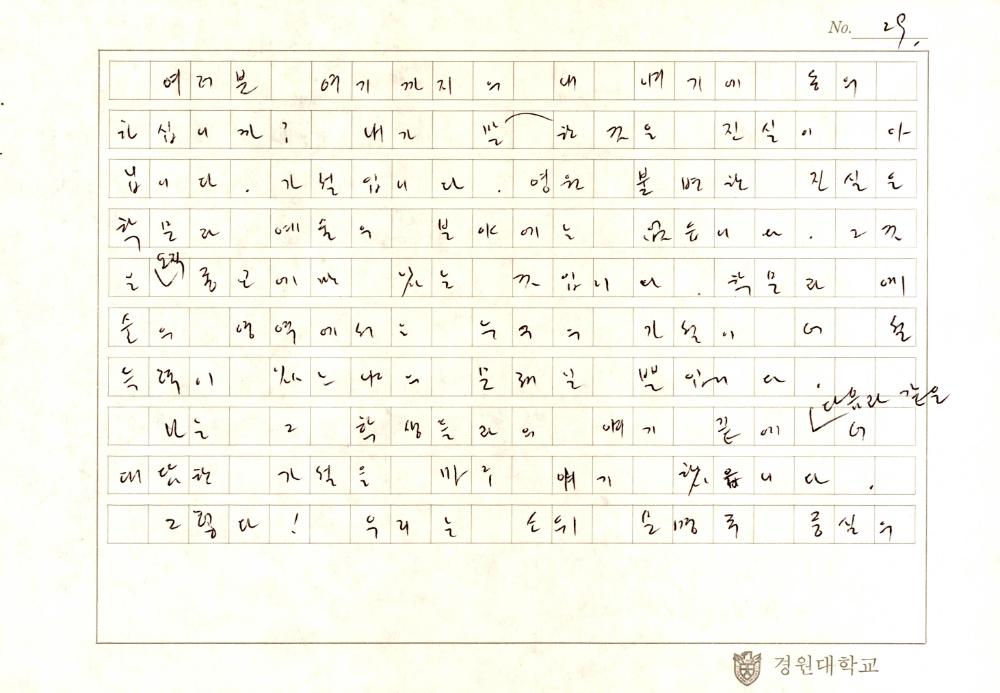 No. 29.
여러분 여기까지의 내 얘기에 동의
하십니까? 내가 말한 것은 진실이 아
닙니다. 가설입니다. 영원 불변한 진실은
학문과 예술의 분야에는 없읍니다. 그것
은 오직 종교에만 있는 것입니다. 학문과 예
술의 영역에서는 누구의 가설이 더 설
득력이 있느냐의 문제일 뿐입니다.
나는 그 학생들과의 얘기 끝에 다음과 같은 더
대담한 가설을 마구 얘기했읍니다.
그렇다! 우리는 소위 문명국 중심의
경원대학교